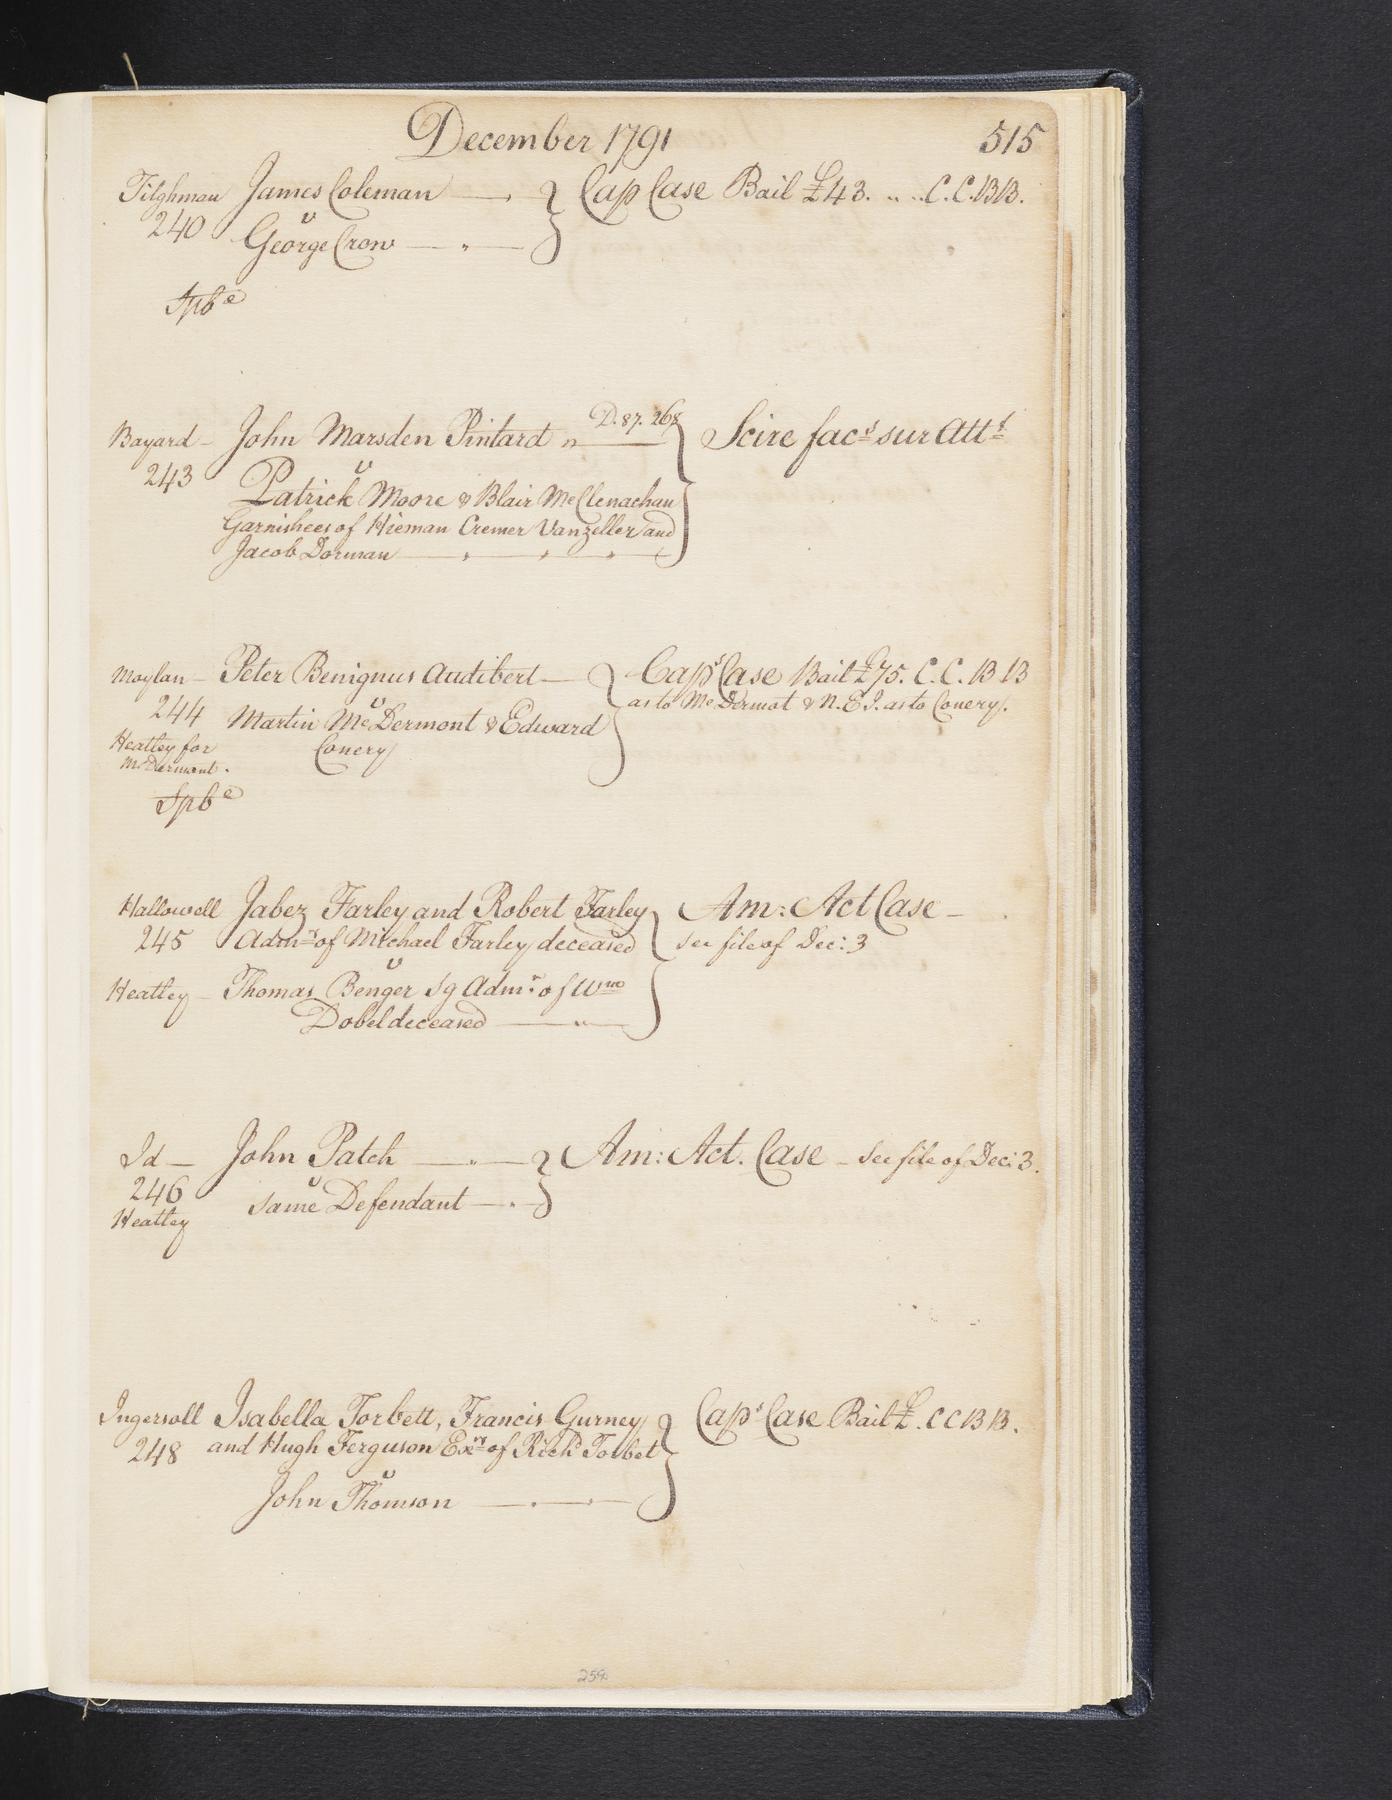 December 1791 515
Tilghman James Coleman Cap Case Bail £43. .. .. C. C. BB.
240 v
George Crow
Spb a
D. 87. 268
Bayard - John Marsden Pintard Scire facs sur Attt
243 v
Patrick Moore & Blair McClenachan
Garnishees of Hieman Cremer Vanzeller and
Jacob Dorman
Moylan - Peter Benignus Audibert Caps Case Bail £75. C. C. B B
as to McDermot & N. E. I. as to Conery.
244 v
Martin McDermont & Edward
Heatley for Conery
McDermont.
Spb a
Hallowell Jabez Farley and Robert Farley Am: Act Case -
245 Admrs of Michael Farley deceased see file of Dec: 3
v
Heatley - Thomas Benger Sg Admr of Wm
Dobel deceased
Id - John Patch Am: Act. Case - See file of Dec: 3.
246 v
same Defendant
Heatley
Ingersoll Isabella Torbett, Francis Gurney Caps Case Bail £. C C B B.
248 and Hugh Ferguson Exrs of Richd Torbet
v
John Thomson
259